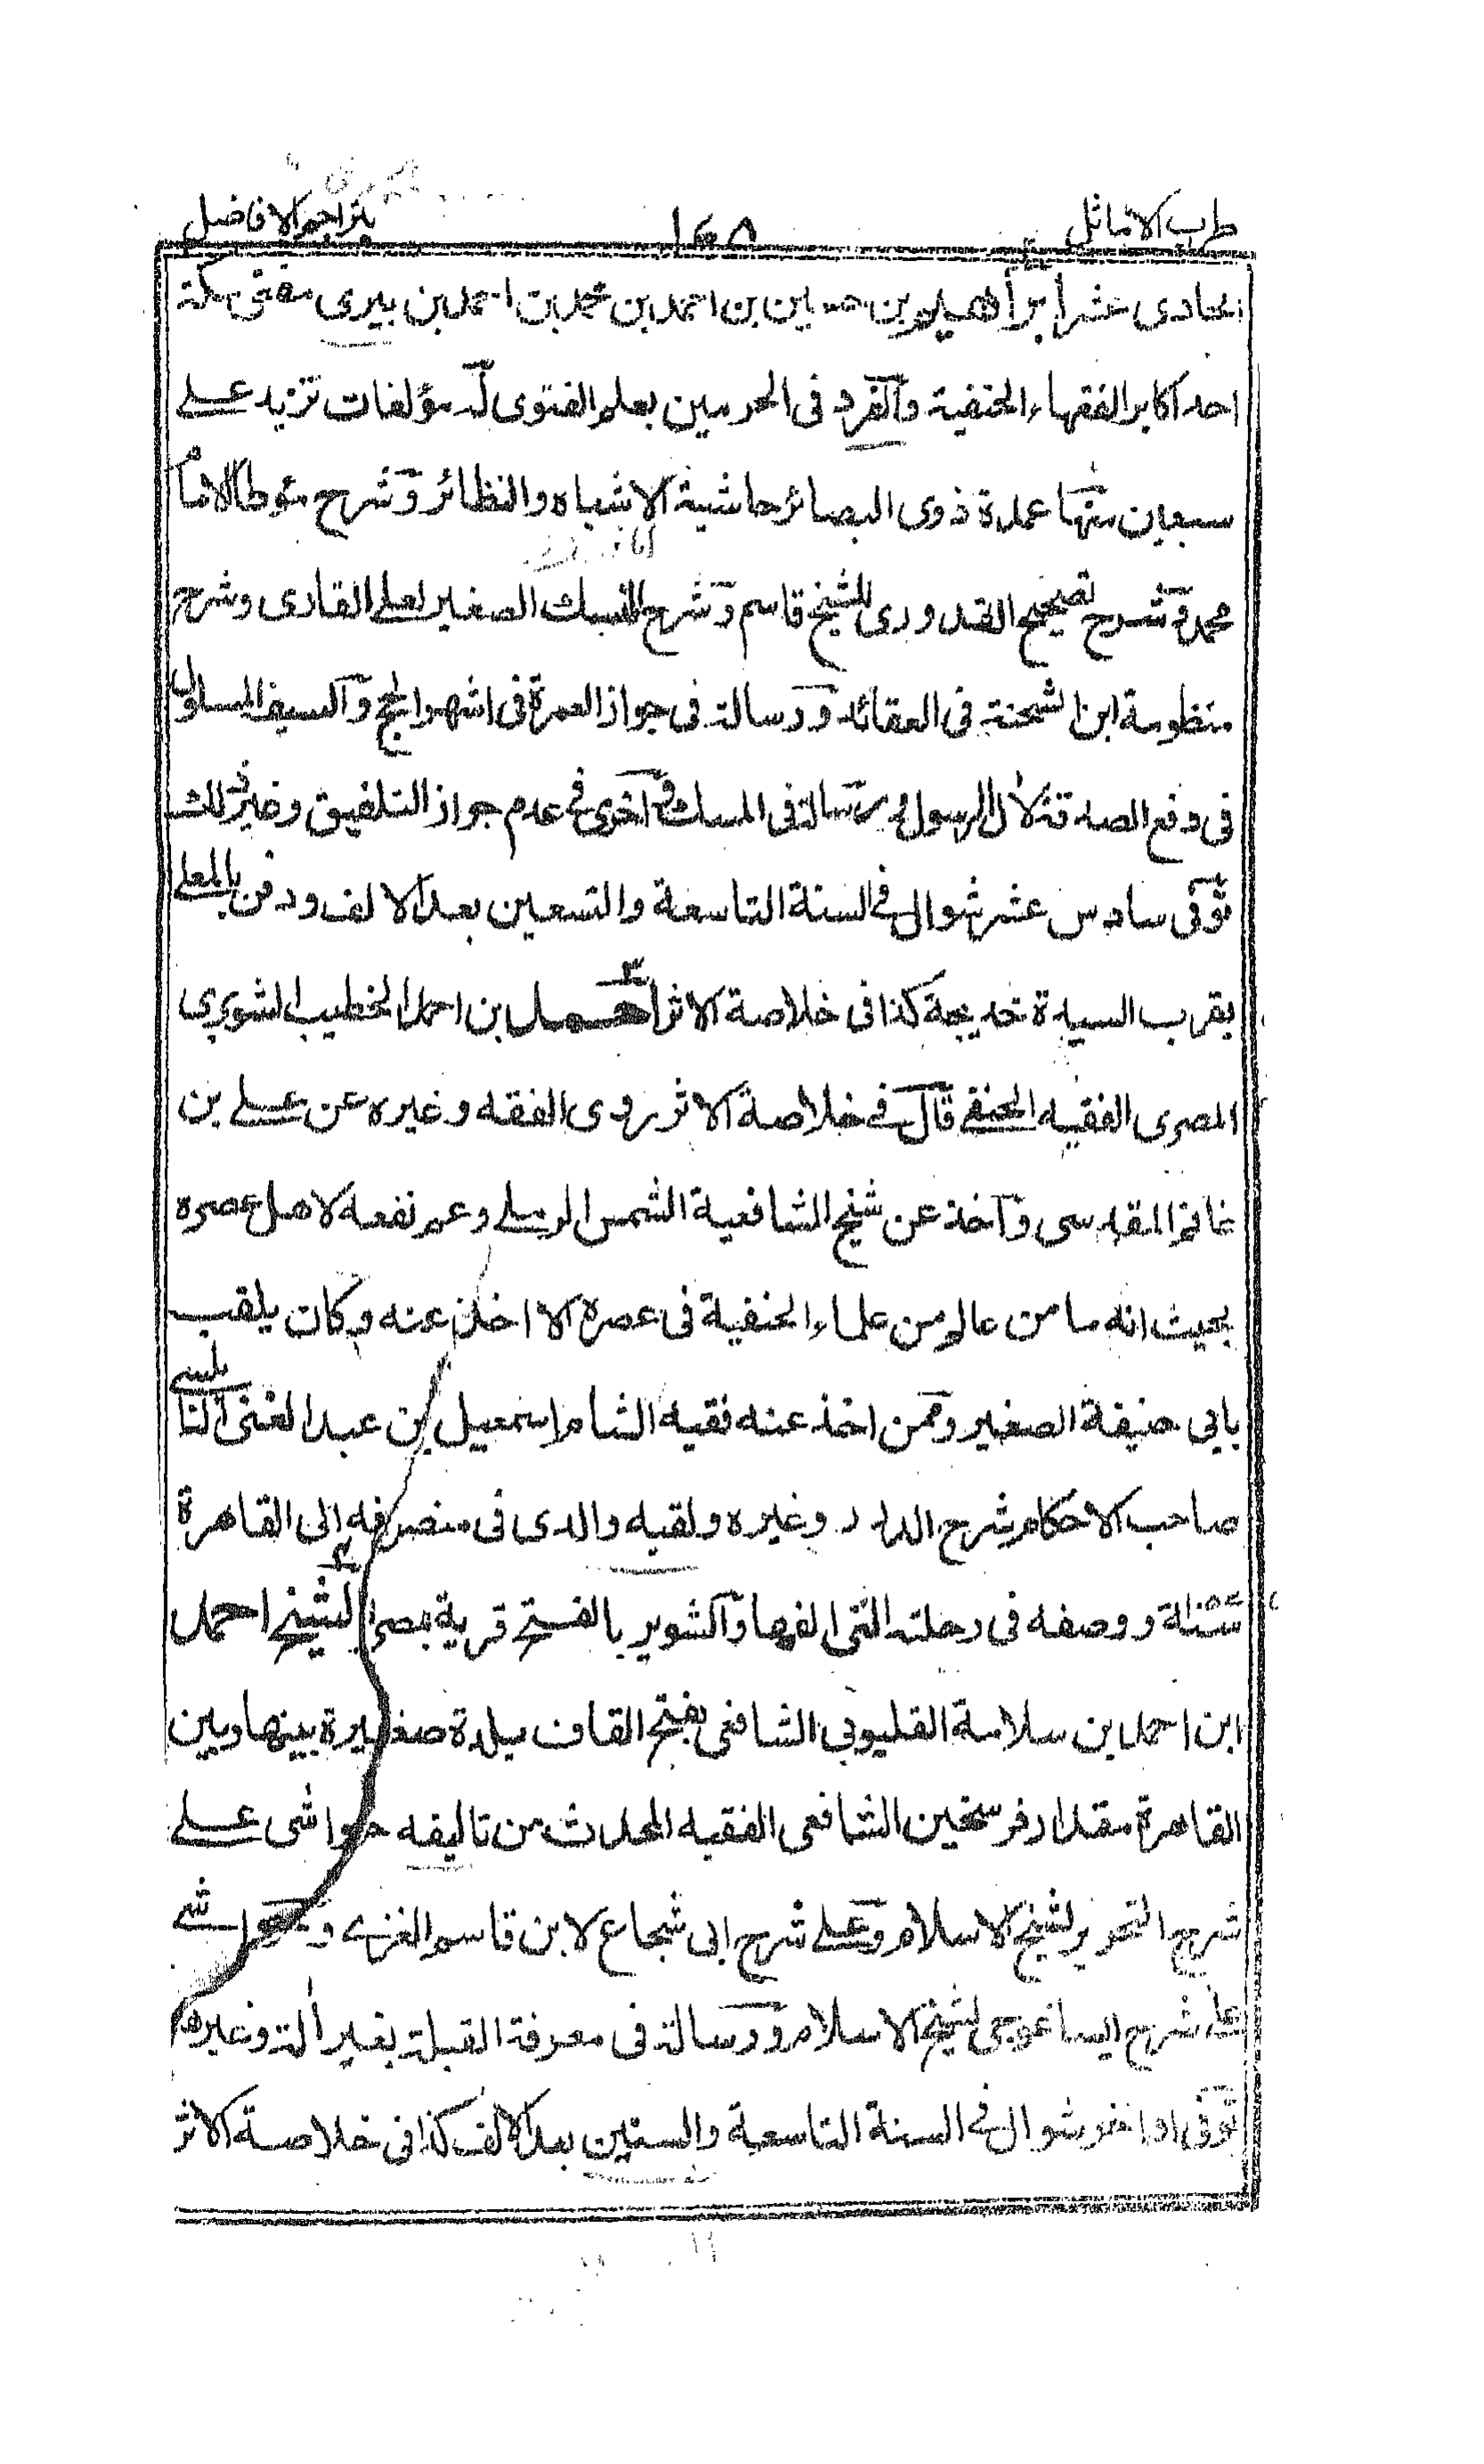 طرب الاماثل ١٦٥ بتراجم الافاضل
الحادي عشر ابراهيم بن حسين بن احمد بن محمد بن احمد بن بيري مفتى مكة
احد اكابر الفقهاء الحنفية وانفرد فى الحرمين بعلم الفتوى له مؤلفات تزيد على
سبعين منها عمدة ذوى البصائر حاشية الاشباه والنظائر وشرح مؤطا الامام
محمد وشرح تصحيح القدورى للشيخ قاسم وشرح المنسك الصغير لعلى القارى وشرح
منظومة ابن الشحنة فى العقائد ورسالة فى جواز العمرة فى اشهر الحج والسيف المسلول
فى دفع الصدقة لآل الرسول ورسالة فى المسك واخرى فى عدم جواز التلفيق وغير ذلك
توفى سادس عشر شوال فى السنة التاسعة والتسعين بعد الالف ودفن بالمعلى
بقرب السيدة خديجة كذا فى خلاصة الاثر احمد بن احمد الخطيب الشوبري
المصرى الفقيه الحنفى قال فى خلاصة الاثر روى الفقه وغيره عن على بن
غانم المقدسى واخذ عن شيخ الشافعية الشمس الرملى وعم نفعه لاهل عصره
بحيث انه ما من عالم من علماء الحنفية فى عصره الا اخذ عنه وكان يلقب
بابى حنيفة الصغير وممن اخذ عنه فقيه الشام اسمعيل بن عبد الغنى النابلسى
صاحب الاحكام شرح الدرر وغيره ولقيه والدى فى منصرفه الى القاهرة
سنة ووصفه فى رحلته التى الفها والشوبر بالفتح قرية بمصر الشيخ احمد
ابن احمد بن سلامة القليوبى الشافعى بفتح القاف بلدة صغيرة بينها وبين
القاهرة مقدار فرسخين الشافعى الفقيه المحدث من تاليفه حواشى على
شرح التحرير لشيخ الاسلام وعلى شرح ابى شجاع لابن قاسم الغزى وحواشى
على شرح ايساغوجى لشيخ الاسلام ورسالة فى معرفة القبلة بغير الة وغيرها
توفى اواخر شوال فى السنة التاسعة والستين بعد الالف كذا فى خلاصة الاثر